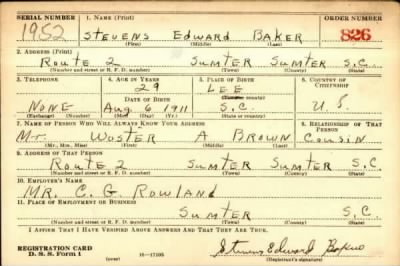 SERIAL NUMBER 1. NAME (Print) ORDER NUMBER
1952 STEVENS Edward BAKER 826
(First) (Middle) (Last)
2. ADDRESS (Print)
Route 2 SUMTER SUMTER S.C.
(Number and street or R. F. D. number) (Town) (County) (State)
3. TELEPHONE 4. AGE IN YEARS 5. PLACE OF BIRTH 6. COUNTRY OF CITIZENSHIP
29 LEE
DATE OF BIRTH (Town or county)
NONE Aug 6 1911 S.C. U.S.
(Exchange) (Number) (Mo.) (Day) (Yr.) (State or country)
7. NAME OF PERSON WHO WILL ALWAYS KNOW YOUR ADDRESS 8. RELATIONSHIP OF THAT PERSON
Mr. WOSTER A BROWN COUSIN
(Mr., Mrs., Miss) (First) (Middle) (Last)
9. ADDRESS OF THAT PERSON
Route 2 SUMTER SUMTER S.C
(Number and street or R. F. D. number) (Town) (County) (State)
10. EMPLOYER'S NAME
MR. C. G. ROWLAND
11. PLACE OF EMPLOYMENT OR BUSINESS
SUMTER S.C.
(Number and street or R. F. D. number) (Town) (County) (State)
I AFFIRM THAT I HAVE VERIFIED ABOVE ANSWERS AND THAT THEY ARE TRUE.
REGISTRATION CARD Stevens Edward Baker
D. S. S. Form 1 (over) 16—17105 (Registrant's signature)